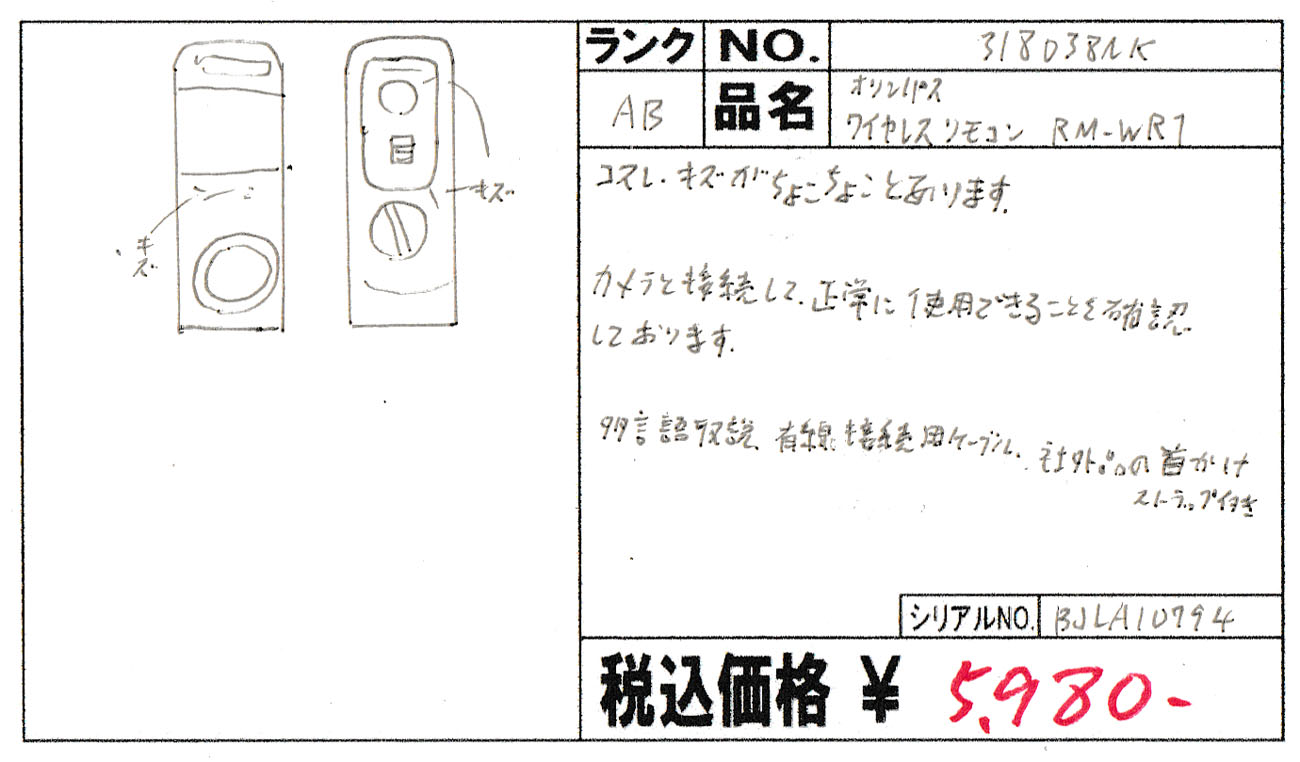 キズ
キズ
ランク NO. 318038NK
AB 品名 オリンパス
ワイヤレスリモコン RM-WR1
コスレ・キズがちょこちょことあります。
カメラと接続して、正常に使用できることを確認
しております。
多言語取説、有線接続用ケーブル、社外品の首かけ
ストラップ付き
シリアルNO. BJLA10794
税込価格 ¥ 5,980-